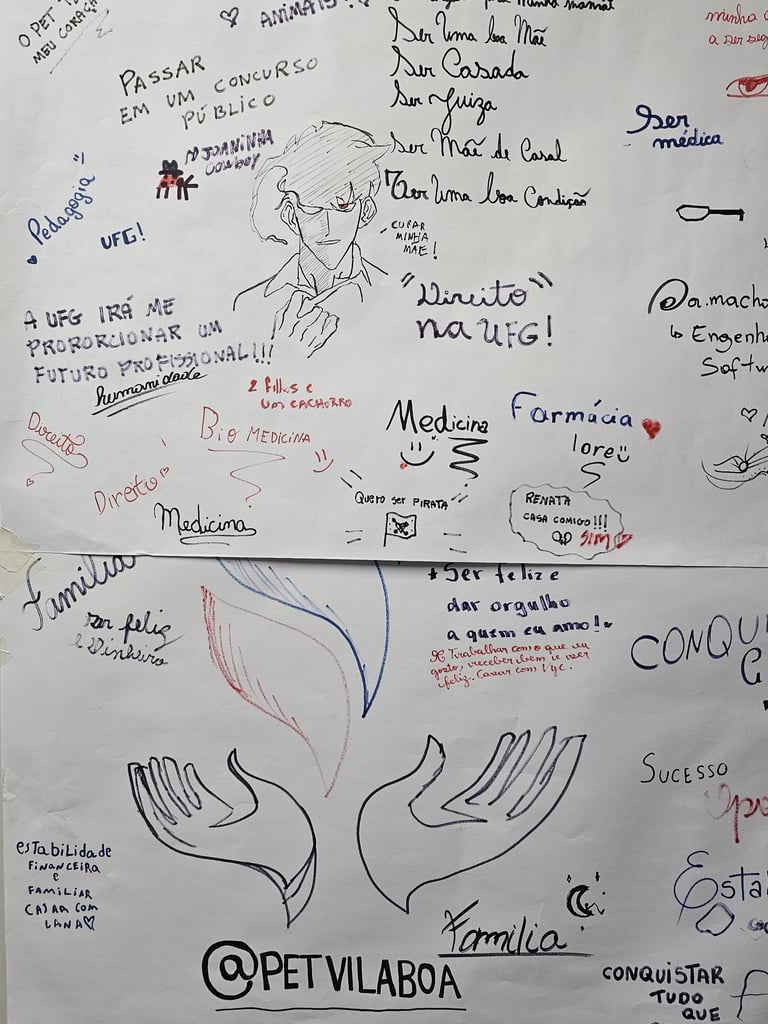 O PET
MEU CORAÇÃO
ANIMAIS!
PASSAR
EM UM CONCURSO
PÚBLICO
Ser Uma boa Mãe
Ser Casada
Ser Juiza
Ser Mãe de Casal
Ter Uma boa Condição
minha
a ser
Ser
médica
JOANINHA
COWBOY
Pedagogia
UFG!
CUPAR
MINHA
MÃE!
"Direito"
na UFG!
@a.macha
↳ Engenh
Softw
A UFG IRÁ ME
PROPORCIONAR UM
FUTURO PROFISSIONAL!!!
humanidade
2 filhos e
UM CACHORRO
Direito
BIOMEDICINA
Medicina
Farmácia
lore
Direito
Medicina
Quero ser PIRATA
RENATA
CASA COMIGO!!!
SIM
Familia
ser feliz
e Dinheiro
* Ser feliz e
dar orgulho
a quem eu amo!
Trabalhar com o que eu
gosto, receber bem e ser
feliz. Casar com Vyc.
CONQU
SUCESSO
Opo
estabilidade
FINANCEIRA
e
FAMILIAR
CASAR COM
LANA
Esta
Familia
@PETVILABOA
CONQUISTAR
TUDO
QUE